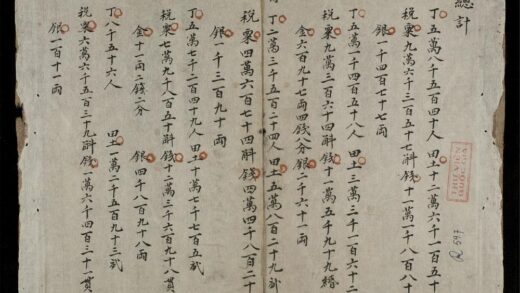 總計
丁五萬八千五百四十人 田土十二萬六千一百五十
稅粟九萬六千三百五十七斛 錢十一萬一千八百八十
銀一千四百七十七両
丁五萬七千五百五十八人 田土三萬二千一百六十二
稅粟九萬三百六十四斛 錢十一萬五千九十九緡
金六百九十七両四錢八分 銀二千六十一両
丁二萬三千五百二十四人 田土五萬八百二十九畝
稅粟四萬六百七十四斛 錢四萬四千八百二十
銀一千三百九十両
丁五萬七千二百四十九人 田土十萬七千七百五畝
稅粟七萬九千八百五十斛 錢十二萬三千六百九十八貫
金十一両二錢二分 銀四千八百九十八両
丁八千五百六十六人 田土一萬二千五百九十三畝
稅粟六萬六千五百三十九斛 錢一萬六千四百三十一貫
銀一百十一両
THƯ VIỆN
QUỐC GIA
R 597